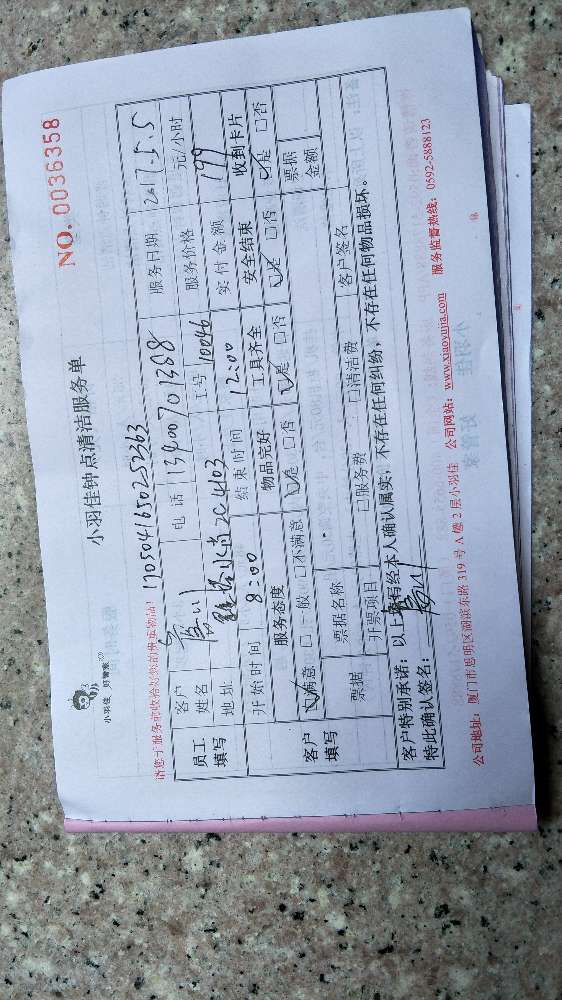 小羽佳 好管家
小羽佳钟点清洁服务单
NO. 0036358
请您于服务前收拾好您的贵重物品！
1705041650252363
员工填写 客户姓名 电话 13400701388 服务日期 2017.5.5
地址 2C4403 工号 10046 服务价格 元/小时
开始时间 8:00 结束时间 12:00 实付金额 199
客户填写 服务态度 物品完好 工具齐全 安全结束 收到卡片
☑满意 □一般 □不满意 ☑是 □否 ☑是 □否 ☑是 □否 ☑是 □否
票据 票据名称 票据金额
开票项目 □服务费 □清洁费 客户签名
客户特别承诺：以上资料经本人确认属实，不存在任何纠纷，不存在任何物品损坏。
特此确认签名：
公司地址：厦门市思明区湖滨东路 319 号 A 楼 2 层小羽佳 公司网站：www.xiaoyujia.com 服务监督热线：0592-5888123